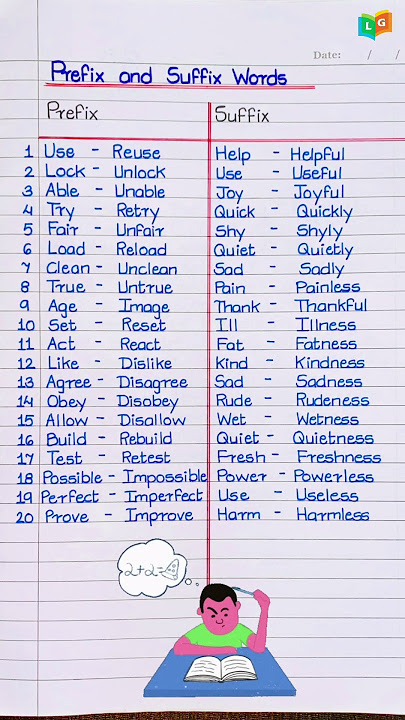 L G
Date: / /
Prefix and Suffix Words
Prefix Suffix
1 Use - Reuse Help - Helpful
2 Lock - Unlock Use - Useful
3 Able - Unable Joy - Joyful
4 Try - Retry Quick - Quickly
5 Fair - Unfair Shy - Shyly
6 Load - Reload Quiet - Quietly
7 Clean - Unclean Sad - Sadly
8 True - Untrue Pain - Painless
9 Age - Image Thank - Thankful
10 Set - Reset Ill - Illness
11 Act - React Fat - Fatness
12 Like - Dislike Kind - Kindness
13 Agree - Disagree Sad - Sadness
14 Obey - Disobey Rude - Rudeness
15 Allow - Disallow Wet - Wetness
16 Build - Rebuild Quiet - Quietness
17 Test - Retest Fresh - Freshness
18 Possible - Impossible Power - Powerless
19 Perfect - Imperfect Use - Useless
20 Prove - Improve Harm - Harmless
2+2=